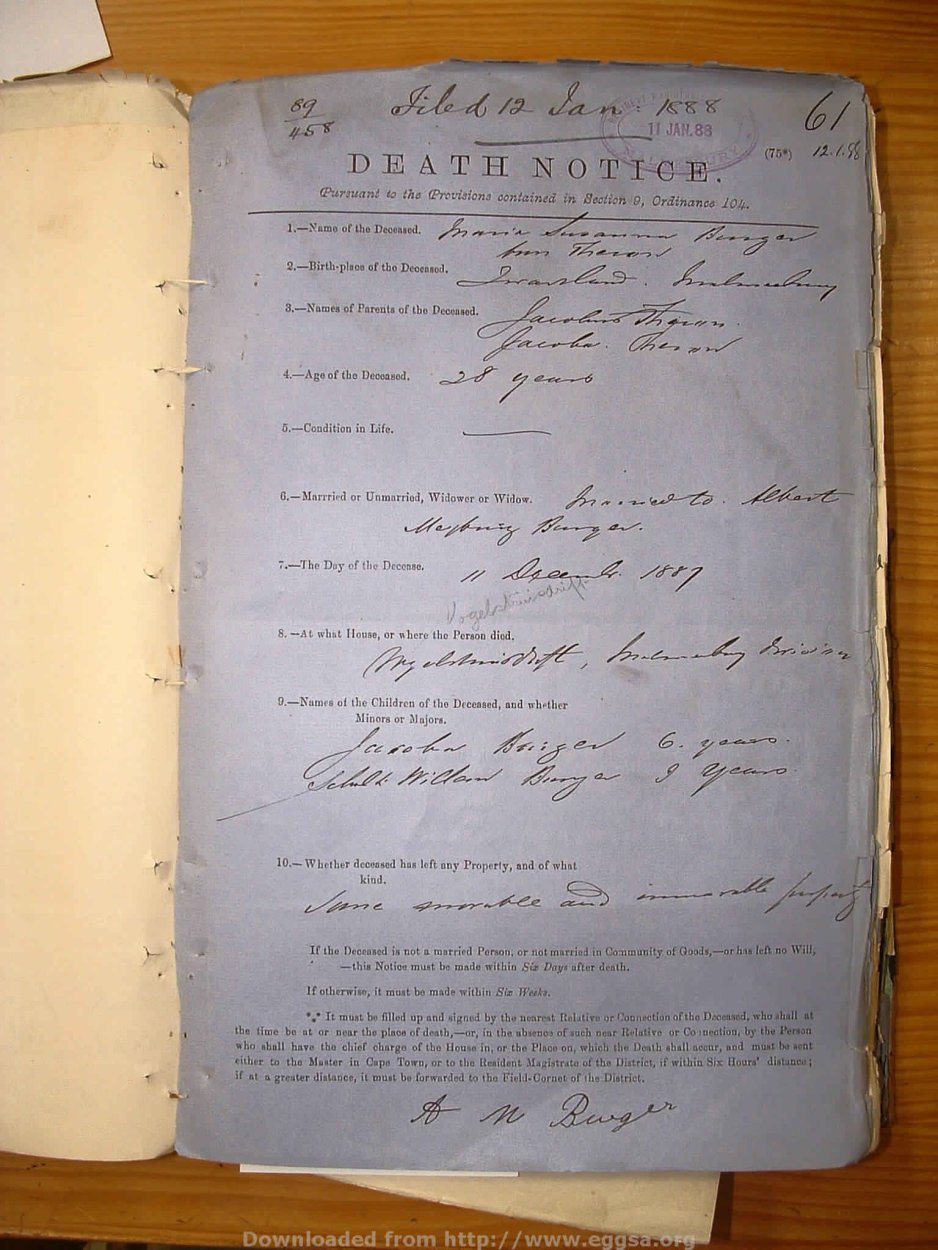 89
458
Filed 12 Jan: 1888
61
11 JAN.88
(75*)
12.1.88
DEATH NOTICE.
Pursuant to the Provisions contained in Section 9, Ordinance 104.
1.—Name of the Deceased. Maria Susanna Burger
born Theron
2.—Birth-place of the Deceased. Zwartland. Malmesbury
3.—Names of Parents of the Deceased. Jacobus Theron.
Jacoba. Theron
4.—Age of the Deceased. 28 years
5.—Condition in Life. —
6.—Marrried or Unmarried, Widower or Widow. Married to. Albert
Meyburg Burger.
7.—The Day of the Decease. 11 Decemb. 1887
Vogelstruisdrift
8.—At what House, or where the Person died.
Vogelstruisdrift, Malmesbury Division
9.—Names of the Children of the Deceased, and whether
Minors or Majors.
Jacoba Burger 6. years.
Schalk Willem Burger years
10.—Whether deceased has left any Property, and of what
kind.
Some movable and immovable property
If the Deceased is not a married Person, or not married in Community of Goods,—or has left no Will,
—this Notice must be made within Six Days after death.
If otherwise, it must be made within Six Weeks.
*** It must be filled up and signed by the nearest Relative or Connection of the Deceased, who shall at
the time be at or near the place of death,—or, in the absence of such near Relative or Connection, by the Person
who shall have the chief charge of the House in, or the Place on, which the Death shall occur, and must be sent
either to the Master in Cape Town, or to the Resident Magistrate of the District, if within Six Hours' distance;
if at a greater distance, it must be forwarded to the Field-Cornet of the District.
A M Burger
Downloaded from http://www.eggsa.org